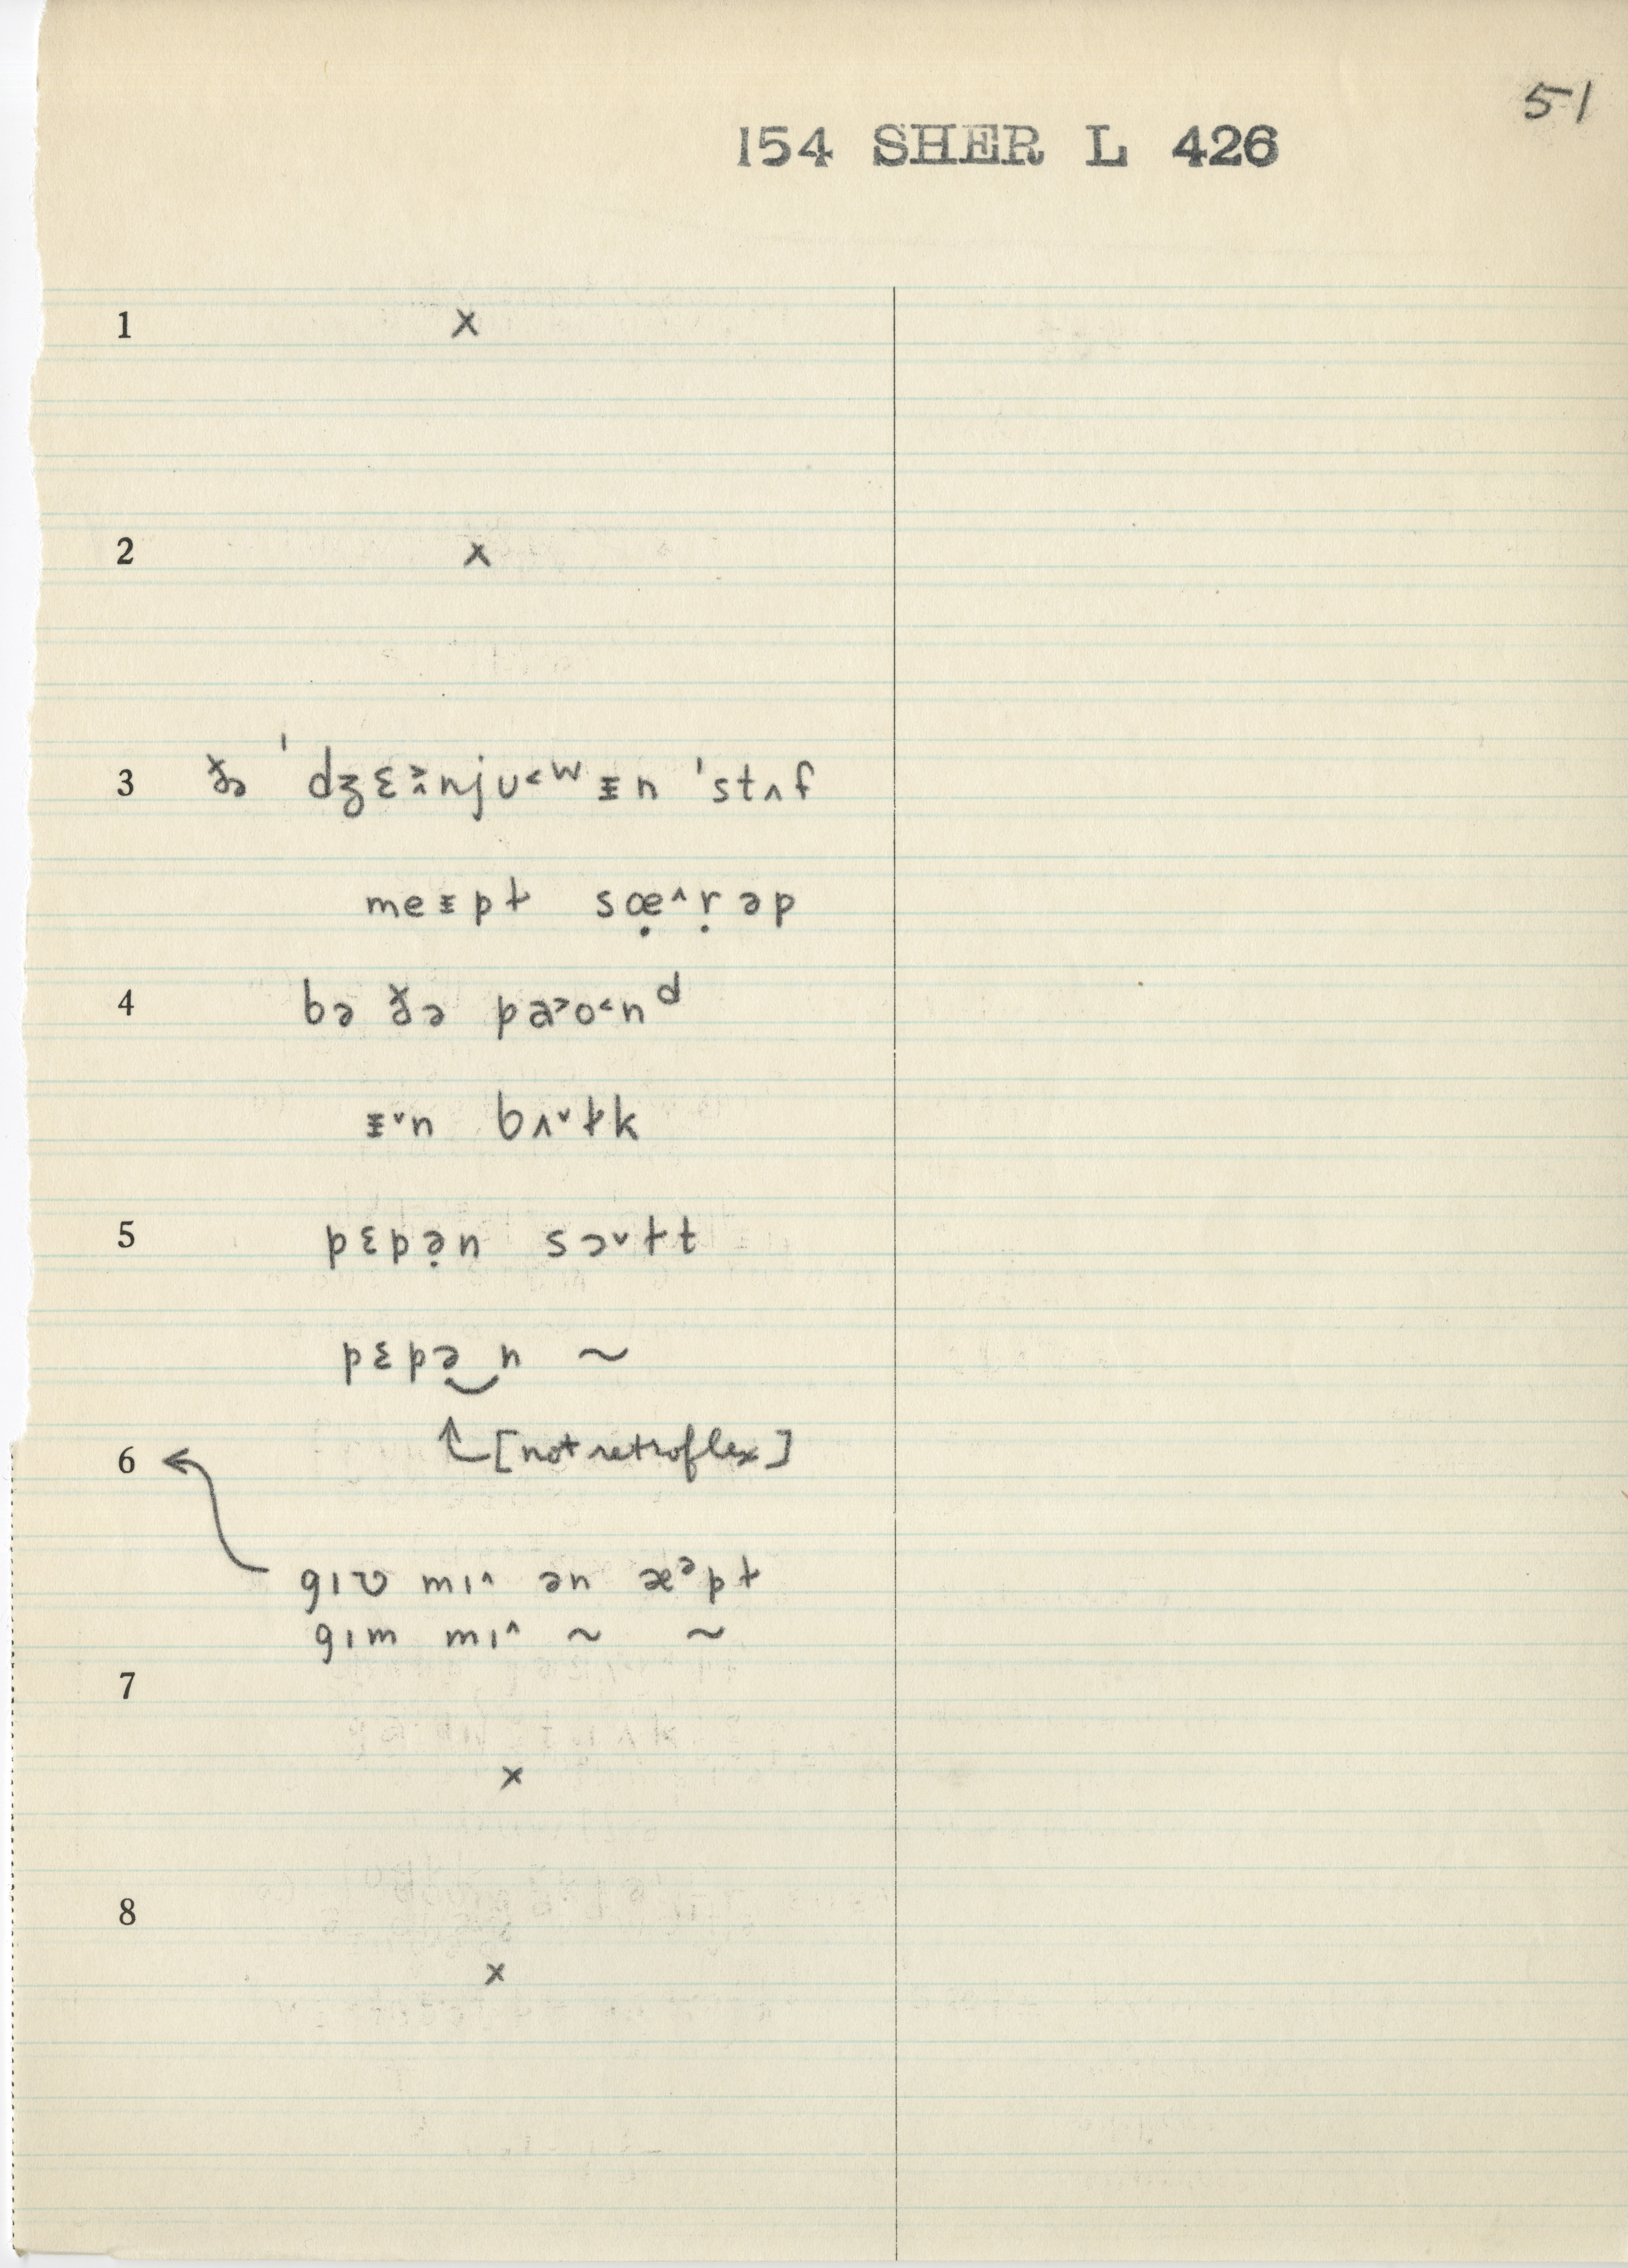 51
154 SHER L 426
1 x
2 x
3 ðə ˈdʒɛ˃˄njʊ˂ʷᵻn ˈstʌf
meᵻpɫ sœ̣˄ṛəp
4 bə ðə pa˃o˂nᵈ
ᵻ˅n bʌ˅ɫk
5 pɛpə̣n sɔ˅ɫt
pɛpə‿n ~
[not retroflex]
6
gɪʋ mɪ˄ ən æᵊpɫ
gɪm mɪ˄ ~ ~
7
x
8
x